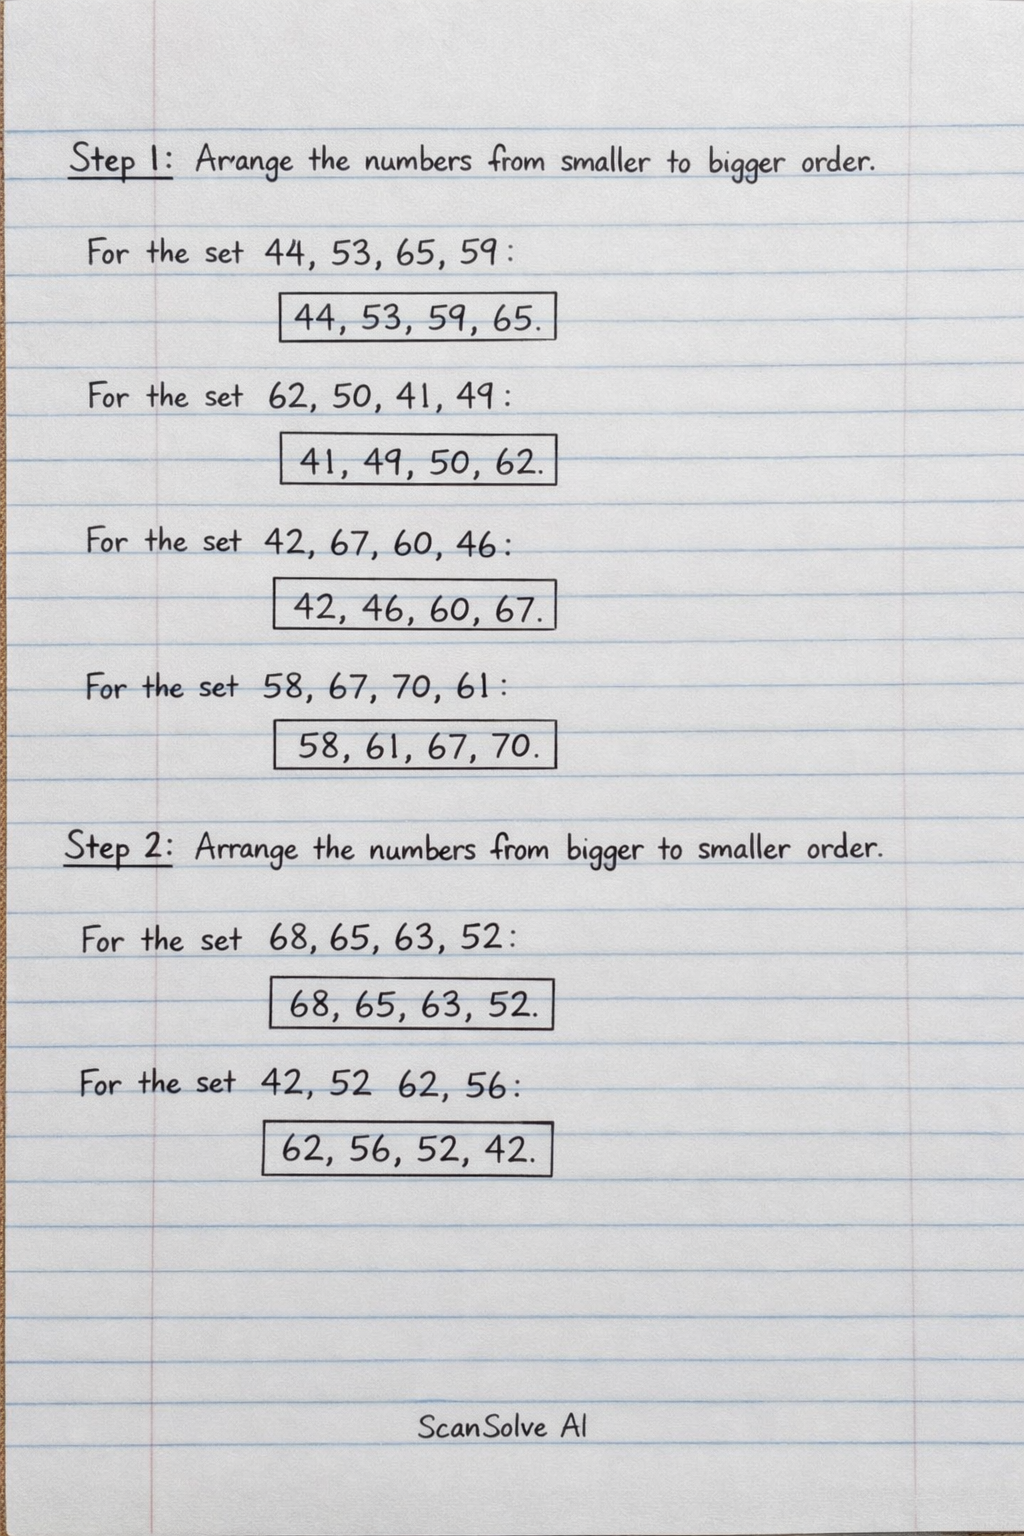 Step 1: Arange the numbers from smaller to bigger order.
For the set 44, 53, 65, 59:
44, 53, 59, 65.
For the set 62, 50, 41, 49:
41, 49, 50, 62.
For the set 42, 67, 60, 46:
42, 46, 60, 67.
For the set 58, 67, 70, 61:
58, 61, 67, 70.
Step 2: Arrange the numbers from bigger to smaller order.
For the set 68, 65, 63, 52:
68, 65, 63, 52.
For the set 42, 52 62, 56:
62, 56, 52, 42.
ScanSolve AI